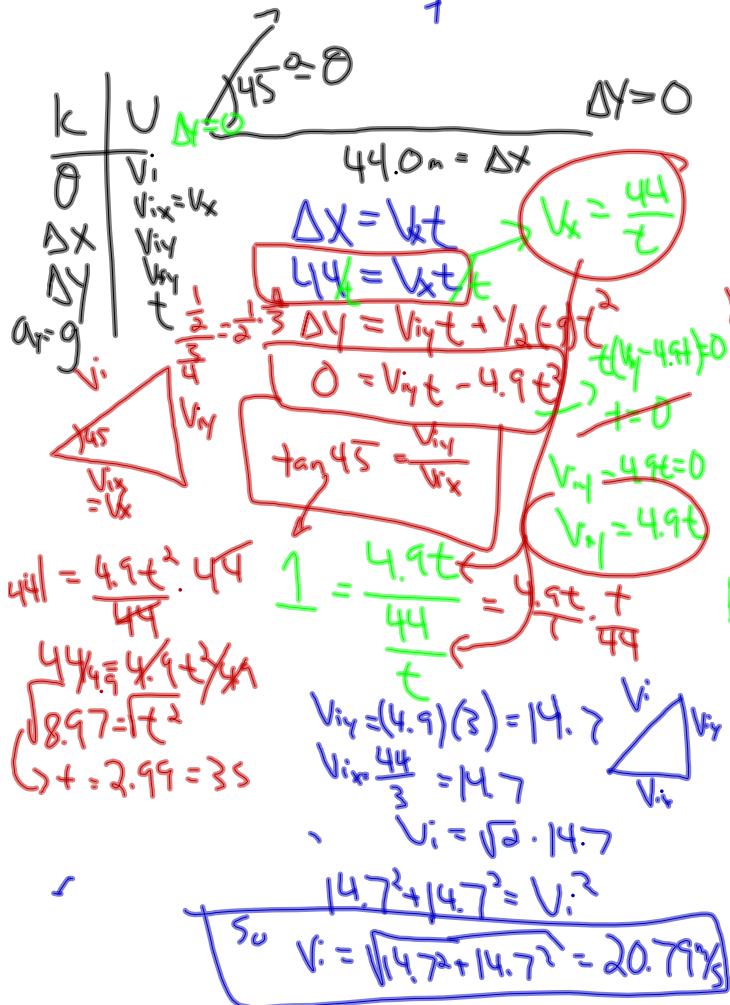 45° = θ
ΔY = 0
ΔY = 0
44.0m = ΔX
K | U
θ | Vi
Vix = Vx
ΔX | Viy
ΔY | Vfy
t
ay = g
ΔX = Vxt
44/t = Vxt/t
Vx = 44/t
ΔY = Viyt + 1/2(-g)t²
0 = Viyt - 4.9t²
t(Viy - 4.9t) = 0
t = 0
Viy - 4.9t = 0
Viy = 4.9t
tan 45 = Viy/Vix
Vi
45
Viy
Vix
= Vx
1 = 4.9t / (44/t) = 4.9t/1 · t/44
44·1 = 4.9t²/44 · 44
44/4.9 = 4.9t²/4.9
√8.97 = √t²
t = 2.99 = 3s
Viy = (4.9)(3) = 14.7
Vix = 44/3 = 14.7
Vi
Viy
Vix
Vi = √2 · 14.7
14.7² + 14.7² = Vi²
So Vi = √14.7² + 14.7² = 20.79 m/s